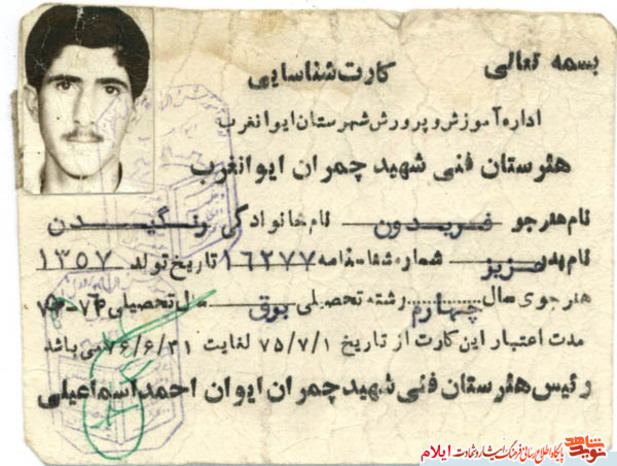 بسمه تعالی
کارت شناسایی
اداره آموزش و پرورش شهرستان ایوانغرب
هنرستان فنی شهید چمران ایوانغرب
نام هنرجو فریدون نام خانوادگی رنگیدن
نام پدر عزیز شماره شناسنامه ۱۶۲۷۷ تاریخ تولد ۱۳۵۷
هنرجوی سال چهارم رشته تحصیلی برق سال تحصیلی ۷۶-۷۵
مدت اعتبار این کارت از تاریخ ۷۵/۷/۱ لغایت ۷۶/۶/۳۱ می باشد
رئیس هنرستان فنی شهید چمران ایوان احمد اسماعیلی
نوید شاهد پایگاه اطلاع رسانی فرهنگ ایثار و شهادت ایلام